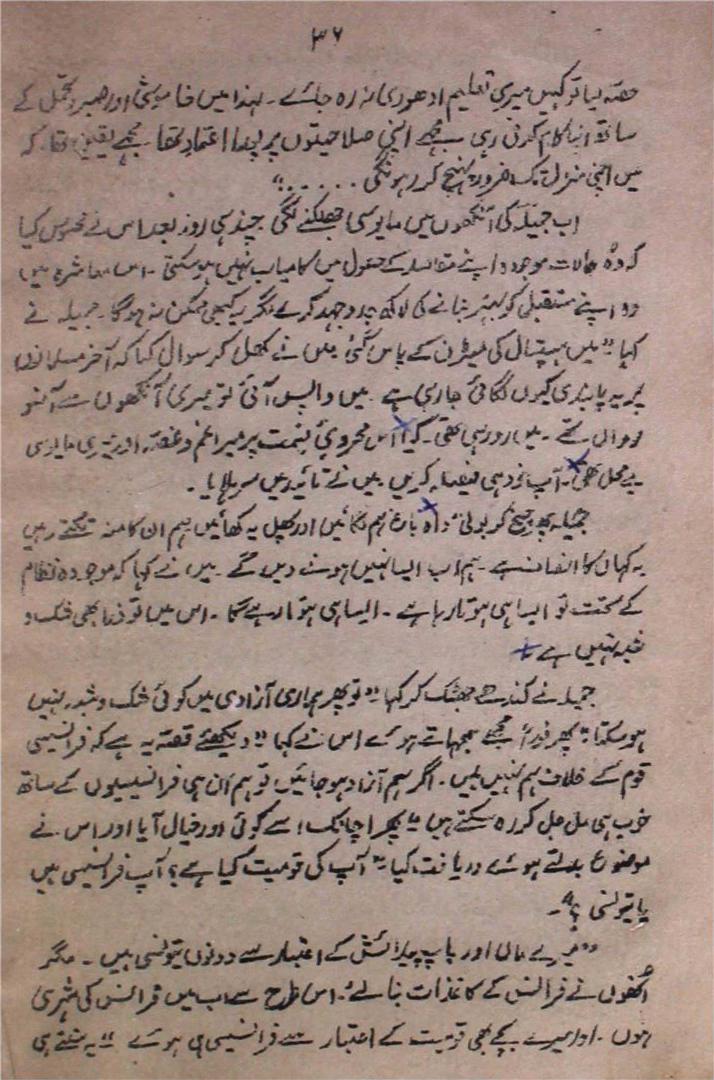 ۳۶
حصّہ لیا تو کہیں میری تعلیم ادھوری نہ رہ جائے ۔ لہٰذا میں خاموشی اور صبر و تحمّل کے
ساتھ اپنا کام کرتی رہی مجھے اپنی صلاحیتوں پر پورا اعتماد تھا مجھے یقین تھا کہ
میں اپنی منزل تک ضرور پہنچ کر رہونگی ......“
اب جمیلہ کی آنکھوں میں مایوسی جھلکنے لگی چند ہی روز بعد اس نے محسوس کیا
کہ وہ حالات موجودہ اپنے مقاصد کے حصول میں کامیاب نہیں ہو سکتی ۔ اس معاشرہ میں
وہ اپنے مستقبل کو بہتر بنانے کی لاکھ جدوجہد کرے مگر یہ کبھی ممکن نہ ہو گا ۔ جمیلہ نے
کہا ”میں ہسپتال کی میٹرن کے پاس گئی میں نے کھل کر سوال کیا کہ آخر مسلمانوں
پر یہ پابندی کیوں لگائی جا رہی ہے ۔ میں واپس آئی تو میری آنکھوں سے آنسو
رواں تھے ۔ میں رو رہی تھی ۔ کیا اس محرومیٔ قسمت پر میرا غم و غصّہ اور میری مایوسی
بے محل تھی ۔ آپ خود ہی فیصلہ کریں میں نے تائید میں سر ہلایا ۔
جمیلہ پھر چیخ کر بولی ”واہ باغ ہم لگائیں اور پھل یہ کھائیں ہم ان کا منہ تکتے رہیں
یہ کہاں کا انصاف ہے ۔ ہم اب ایسا نہیں ہونے دیں گے ۔ میں نے کہا کہ موجودہ نظام
کے تحت تو ایسا ہی ہوتا رہا ہے ۔ ایسا ہی ہوتا رہے گا ۔ اس میں تو ذرا بھی شک و
شبہ نہیں ہے
جمیلہ نے کندھے جھٹک کر کہا ”تو پھر ہماری آزادی میں کوئی شک و شبہ نہیں
ہو سکتا“ پھر فوراً مجھے سمجھاتے ہوئے اس نے کہا ”دیکھئے قصّہ یہ ہے کہ فرانسیسی
قوم کے خلاف ہم نہیں ہیں ۔ اگر ہم آزاد ہو جائیں تو ہم ان ہی فرانسیسیوں کے ساتھ
خوب ہی مل جل کر رہ سکتے ہیں“ پھر اچانک اسے کوئی اور خیال آیا اور اس نے
موضوع بدلتے ہوئے دریافت کیا ”آپ کی قومیت کیا ہے؟ آپ فرانسیسی ہیں
یا تیونسی ؟“ ۔
”میرے ماں اور باپ پیدائش کے اعتبار سے دونوں تیونسی ہیں ۔ مگر
اُنھوں نے فرانس کے کاغذات بنا لئے ۔ اس طرح سے اب میں فرانس کی شہری
ہوں ۔ اور میرے بچے بھی قومیت کے اعتبار سے فرانسیسی ہی ہوئے “ یہ سنتے ہی